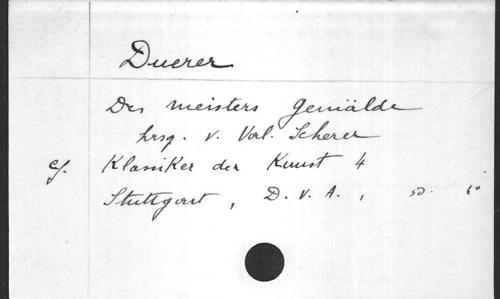 Duerer
Des meisters Gemälde
hrsg. v. Val. Scherer
cf. Klassiker der Kunst 4
Stuttgart, D. V. A.,